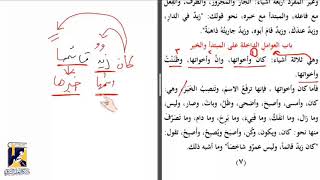 وغير المفرد أربعة أشياء: الجار والمجرور، والظرف، والفعل
مع فاعله، والمبتدأ مع خبره، نحو قولك: "زيدٌ في الدار،
وزيدٌ عندك، وزيدٌ قام أبوه، وزيدٌ جاريته ذاهبة".
باب العوامل الداخلة على المبتدأ والخبر
وهي ثلاثة أشياء: كان وأخواتها، وإن وأخواتها، وظننت
وأخواتها.
فأما كان وأخواتها، فإنها ترفع الاسم، وتنصب الخبر، وهي
كان، وأمسى، وأصبح، وأضحى، وظل، وبات، وصار، وليس
وما زال، وما انفك، وما فتئ، وما برح، وما دام، وما تصرف
منها نحو: كان، ويكون، وكن، وأصبح، ويصبح، وأصبح، تقول:
"كان زيد قائما، وليس عمرو شاخصا" وما أشبه ذلك.
(٧)
كان زيدٌ قائما
اسمها خبرها